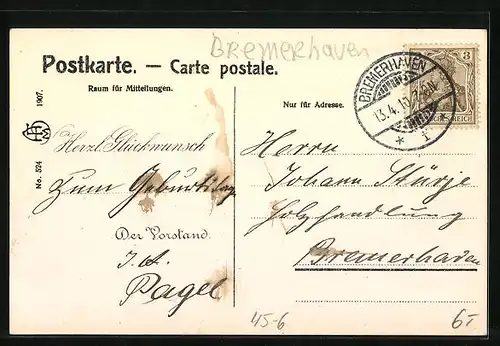 Bremerhaven
Postkarte. — Carte postale.
Raum für Mitteilungen.
Nur für Adresse.
1907.
No. 524
Herzl. Glückwunsch
zum Geburtstage
Der Vorstand.
I. A.
Pagel
BREMERHAVEN
13.4.10.
3
Herrn
Johann Stürje
Holzhandlung
Bremerhaven
45-6